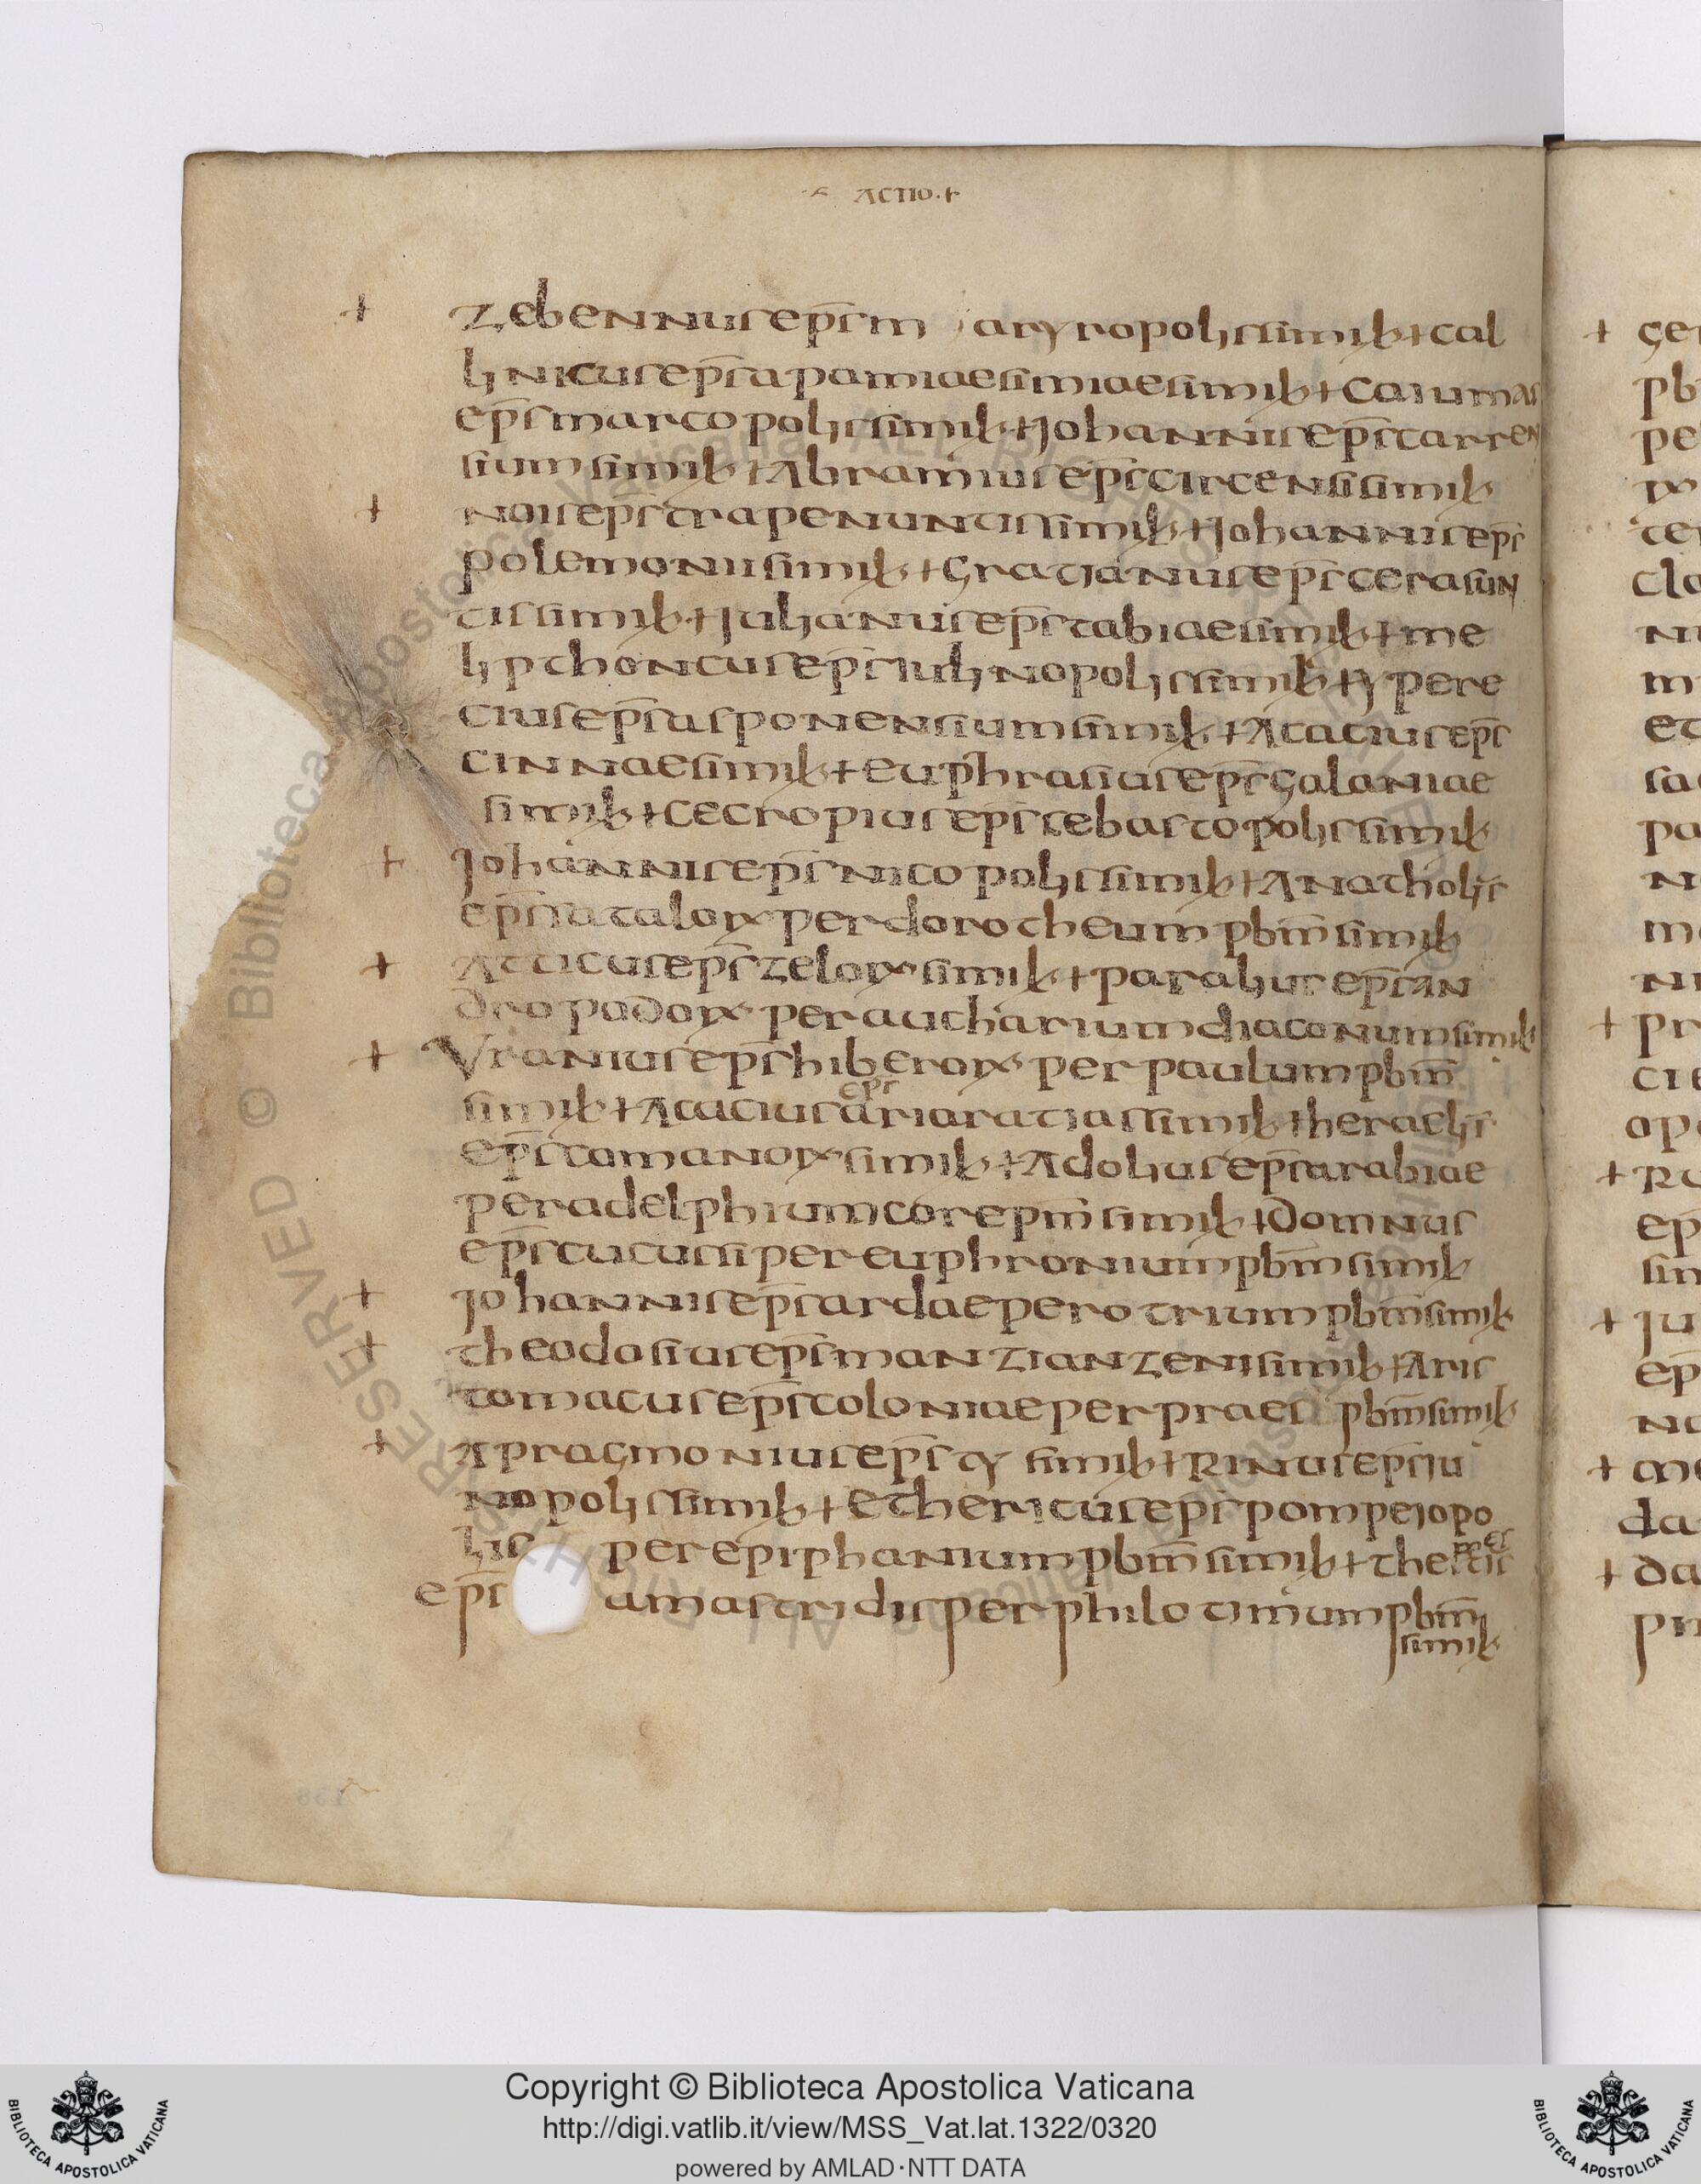 ACTIO·
+ Zebennus ep̄s m aryropolis simil + cal
linicus ep̄s apamiae simiae simil + caiumas
ep̄s marcopolis simil + Johannis ep̄s carren
sium simil + Abramius ep̄s circensi simil
+ nois ep̄s trapenuntis simil + Johannis ep̄s
polemonii simil + Gratianus ep̄s cerasun
tis simil + Julianus ep̄s tabiae simil + me
lipthoncus ep̄s iulinopolis simil + ypere
cius ep̄s asponensium simil + Acacius ep̄s
cinnae simil + euphrasius ep̄s galaniae
simil + cecropius ep̄s sebastopolis simil
+ Johannis ep̄s nicopolis simil + Anatholis
ep̄s satalorum per dorotheum pbm̄ simil
+ Atticus ep̄s zelorum simil + paralius ep̄s an
dropodorum per aucharium diaconum simil
+ Uranius ep̄s hiberorum per paulum pbm̄
eps
simil + Acacius ariaratias simil + heraclis
ep̄s comanorum simil + Adolius ep̄s arabiae
per adelphium corepm̄ simil + Domnus
ep̄s cucusi per euphronium pbm̄ simil
+ Johannis ep̄s cardae per otrium pbm̄ simil
+ theodosius ep̄s manzianzeni simil + Aris
tomacus ep̄s coloniae per praes pbm̄ simil
+ Apragmonius ep̄s ty simil + Rinus ep̄s iu
nopolis simil + Ethericus ep̄s pompeiopo
lis per epiphanium pbm̄ simil + the
ep̄s amastridis per philotimum pbm̄
simil
Copyright © Biblioteca Apostolica Vaticana
http://digi.vatlib.it/view/MSS_Vat.lat.1322/0320
powered by AMLAD·NTT DATA
BIBLIOTECA APOSTOLICA VATICANA
BIBLIOTECA APOSTOLICA VATICANA